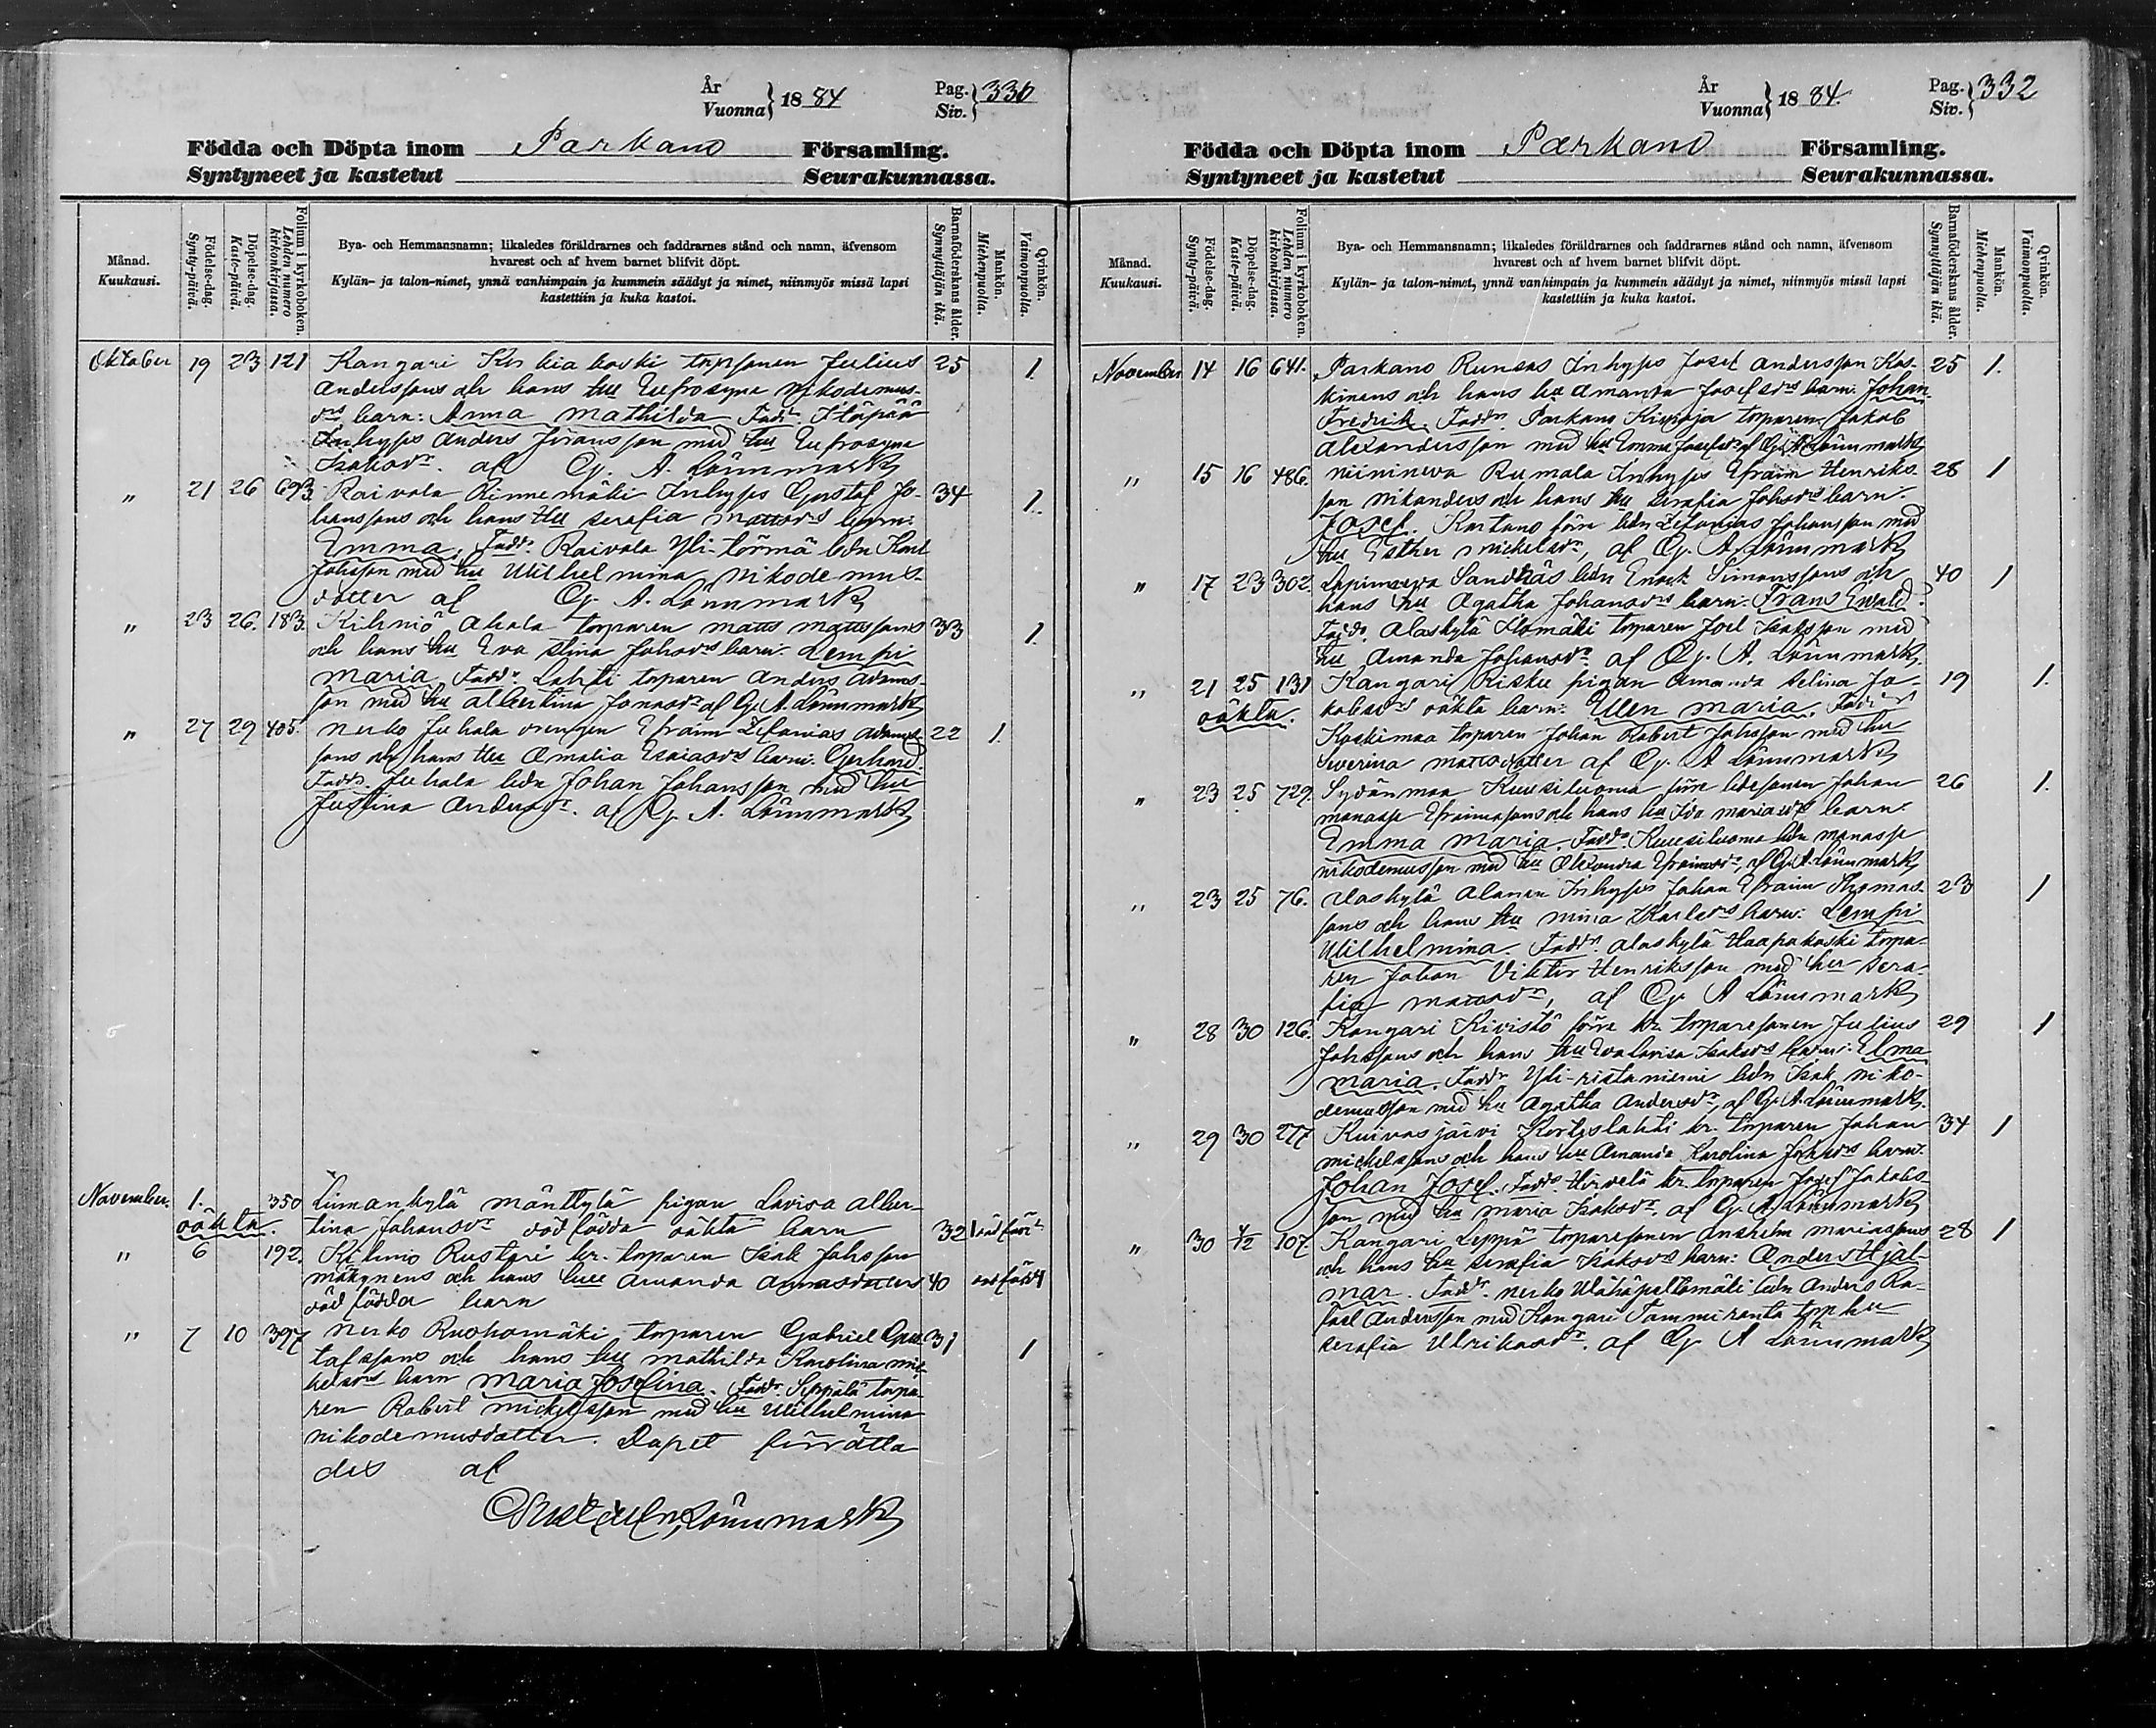 År
Vuonna } 1884
Pag.
Siv. } 330
Födda och Döpta inom Parkano Församling.
Syntyneet ja kastetut Seurakunnassa.
Månad.
Kuukausi.
Födelse-dag.
Synty-päivä.
Döpelse-dag.
Kaste-päivä.
Folium i kyrkoboken.
Lehden numero
kirkonkirjassa.
Bya- och Hemmansnamn; likaledes föräldrarnes och faddrarnes stånd och namn, äfvensom
hvarest och af hvem barnet blifvit döpt.
Kylän- ja talon-nimet, ynnä vanhimpain ja kummein säädyt ja nimet, niinmyös missä lapsi
kastettiin ja kuka kastoi.
Barnaföderskans ålder.
Synnyttäjän ikä.
Mankön.
Miehenpuolia.
Qvinkön.
Vaimonpuolia.
Oktober 19 23 121 Kangari Julius 25 1.
Anderssons och hans hu Eufrosyne Nikodemus-
drs barn: Anna Mathilda Faddr
Inhyses Anders Göransson med hu Eufrosyne
Isaksdr. af G. A. Lönnmark
" 21 26 693 Raivala Rinnemäki Inhyses Gustaf Jo- 34 1.
hanssons och hans Hu Serafia Mattsdrs barn:
Emma. Faddr. Raivala Yli-Törmä bdn Karl
Johsson med hu Wilhelmina Nikodemus-
dotter af G. A. Lönnmark
" 23 26. 183. Kihniö Ahola torparen Matts Mattssons 33 1.
och hans hu Eva Stina Johsdrs barn: Lempi
Maria, Faddr. Lahti torparen Anders Adams-
son med hu Albertina Jonasdr af G. A. Lönnmark
" 27 29 405. Nerko Juhala drengen Efraim Zefanias Adams- 22 1.
sons och hans Hu Amalia Esaiasdrs barn: Gerhard.
Faddr. Juhala bdn Johan Johansson med hu
Justina Andersdr. af G. A. Lönnmark
November. 1. 350 Linnankylä Mänttylä pigan Lovisa Alber-
oäkta. tina Johansdr död födda oäkta barn 32
" 6 192. Kihniö Rustari kr. torparen Isak Johsson
Mäkynens och hans hu Amanda Annasdotters 40
död födda barn
" 7 10 397 Nerko Ruohomäki torparen Gabriel Gus- 31 1
tafssons och hans hu Mathilda Karolina Mic-
kelsdrs barn Maria Josefina. Faddr. Seppälä torpa-
ren Robert Mickelsson med hu Wilhelmina
Nikodemusdotter. Dopet förrätta-
des af
Gustaf Lönnmark
År
Vuonna } 1884.
Pag.
Siv. } 332
Födda och Döpta inom Parkano Församling.
Syntyneet ja kastetut Seurakunnassa.
Månad.
Kuukausi.
Födelse-dag.
Synty-päivä.
Döpelse-dag.
Kaste-päivä.
Folium i kyrkoboken.
Lehden numero
kirkonkirjassa.
Bya- och Hemmansnamn; likaledes föräldrarnes och faddrarnes stånd och namn, äfvensom
hvarest och af hvem barnet blifvit döpt.
Kylän- ja talon-nimet, ynnä vanhimpain ja kummein säädyt ja nimet, niinmyös missä lapsi
kastettiin ja kuka kastoi.
Barnaföderskans ålder.
Synnyttäjän ikä.
Mankön.
Miehenpuolia.
Qvinkön.
Vaimonpuolia.
November 14 16 641. Parkano Runsas Inhyses Josef Andersson Kos- 25 1.
kinens och hans hu Amanda Josefsdrs barn: Johan
Fredrik. Faddr. Parkano Kiwioja torparen Jakob
Alexandersson med hu Emma Josefsdr af G. A. Lönnmark
" 15 16 486. Niininewa Rumala Inhyses Efraim Henriks- 28 1
son Nikanders och hans hu Serafia Johsdrs barn:
Josef. Kartano förre bdn Zefanias Johansson med
hu Esther Mickelsdr, af G. A. Lönnmark
" 17 23 302. Lapinneva Sandhås bdn Enock Simonssons och 40 1
hans hu Agatha Johansdrs barn: Frans Ewald.
Faddr. Alaskylä torparen Joel Isaksson med
hu Amanda Johansdr. af G. A. Lönnmark.
" 21 25 131 Kangari Risku pigan Amanda Selina Ja- 19 1.
oäkta. kobsdrs oäkta barn: Ellen Maria. Faddr
Koskimaa torparen Johan Robert Johsson med hu
Severina Mattsdotter af G. A. Lönnmark
" 23 25 729. Sydänmaa Kuusiluoma förre bdesonen Johan 26 1.
Manasse Efraimssons och hans hu Ida Mariasdrs barn:
Emma Maria. Faddr. Kuusiluoma bdn Manasse
Nikodemusson med hu Alexandra Efraimsdr, af G. A. Lönnmark
" 23 25 76. Alaskylä Alanen Inhyses Johan Efraim Thomas- 23 1
sons och hans hu Mina Karlsdrs barn: Lempi
Wilhelmina. Faddr. Alaskylä Haapakoski torpa-
ren Johan Viktor Henriksson med hu Sera-
fia Mattsdr, af G. A. Lönnmark
" 28 30 126. Kangari Kivistö förre kr. torparesonen Julius 29 1
Johssons och hans hu Eva Lovisa Isaksdrs barn: Elma
Maria. Faddr Yli-ristaniemi bdn Isak Niko-
demusson med hu Agatha Andersdr, af G. A. Lönnmark.
" 29 30 277 Kuivasjärvi Korteslahti kr. torparen Johan 34 1
Mickelssons och hans hu Amanda Karolina Johsdrs barn:
Johan Josef. Faddr. Hirvelä kr. torparen Josef Jakobs-
son med hu Maria Isaksdr. af G. A. Lönnmark
" 30 4/2 107. Kangari Leppä torparesonen Anshelm Mariassons 28 1
och hans hu Serafia Isaksdrs barn: Anders Hjal-
mar. Faddr. Nerko Wähäpeltomäki bdn Anders Ra-
fael Andersson med Kangari Tammiranta torp hu
Serafia Ulrikasdr. af G. A. Lönnmark